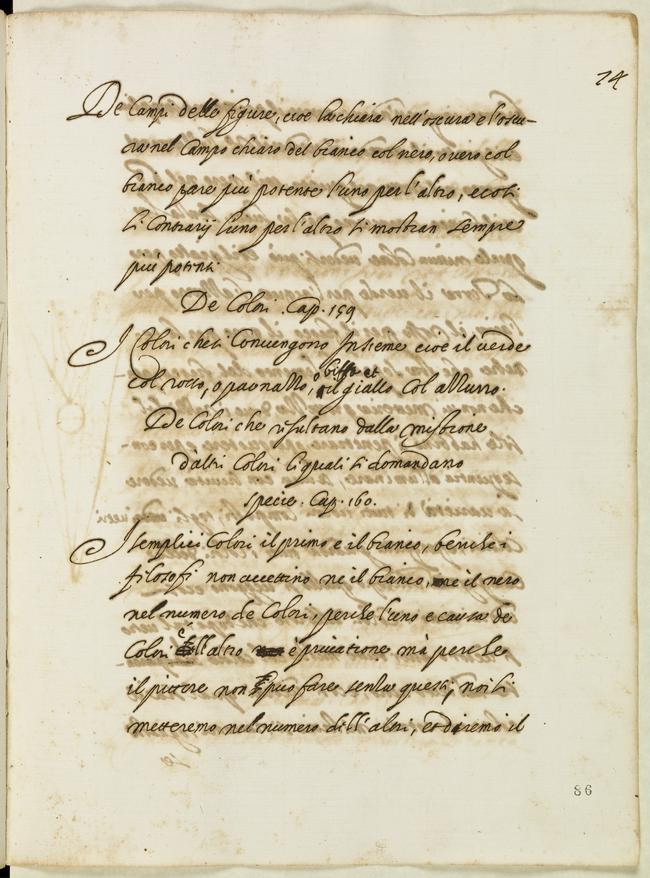 74
De Campi delle figure, cioè la chiara nell'oscura e l'oscu-
ra nel Campo chiaro del bianco col nero, overo col
bianco pare più potente l'uno per l'altro, e così
li Contrarij l'uno per l'altro si mostran sempre
più potenti
De Colori . Cap. 159
I Colori che si Convengono Insieme cioè il verde
col rosso, o paonazzo, o biffa et il giallo Col azzurro.
De Colori che risultano dalla mistione
d'altri Colori li quali si domandano
specie . Cap. 160.
I semplici Colori il primo è il bianco, benche i
filosofi non accettino ne il bianco, ne il nero
nel numero de Colori, perche l'uno e causa de
Colori e l'altro è privatione mà perche
il pittore non può fare senza questi, noi li
metteremo nel numero dell'altri, et diremo il
86